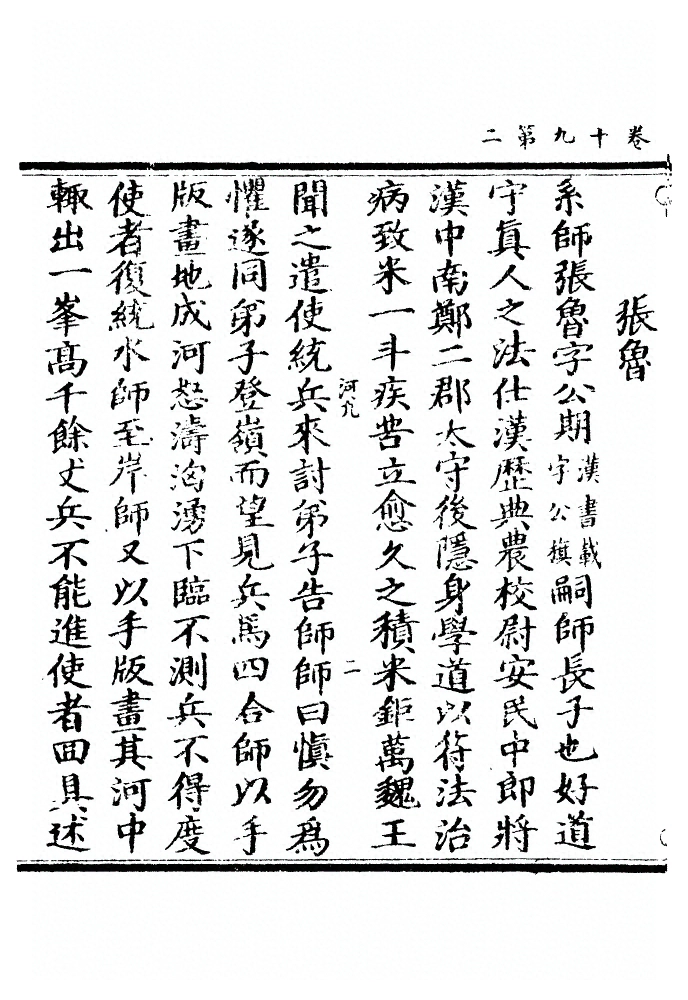 卷十九第二
張魯
系師張魯字公期漢書載字公旗嗣師長子也好道
守真人之法仕漢歷典農校尉安民中郎將
漢中南鄭二郡太守後隱身學道以符法治
病致米一斗疾苦立愈久之積米鉅萬魏王
河九
二
聞之遣使統兵來討弟子告師師曰慎勿爲
懼遂同弟子登嶺而望見兵馬四合師以手
版畫地成河怒濤洶湧下臨不測兵不得度
使者復統水師至岸師又以手版畫其河中
輙出一峯高千餘丈兵不能進使者回具述